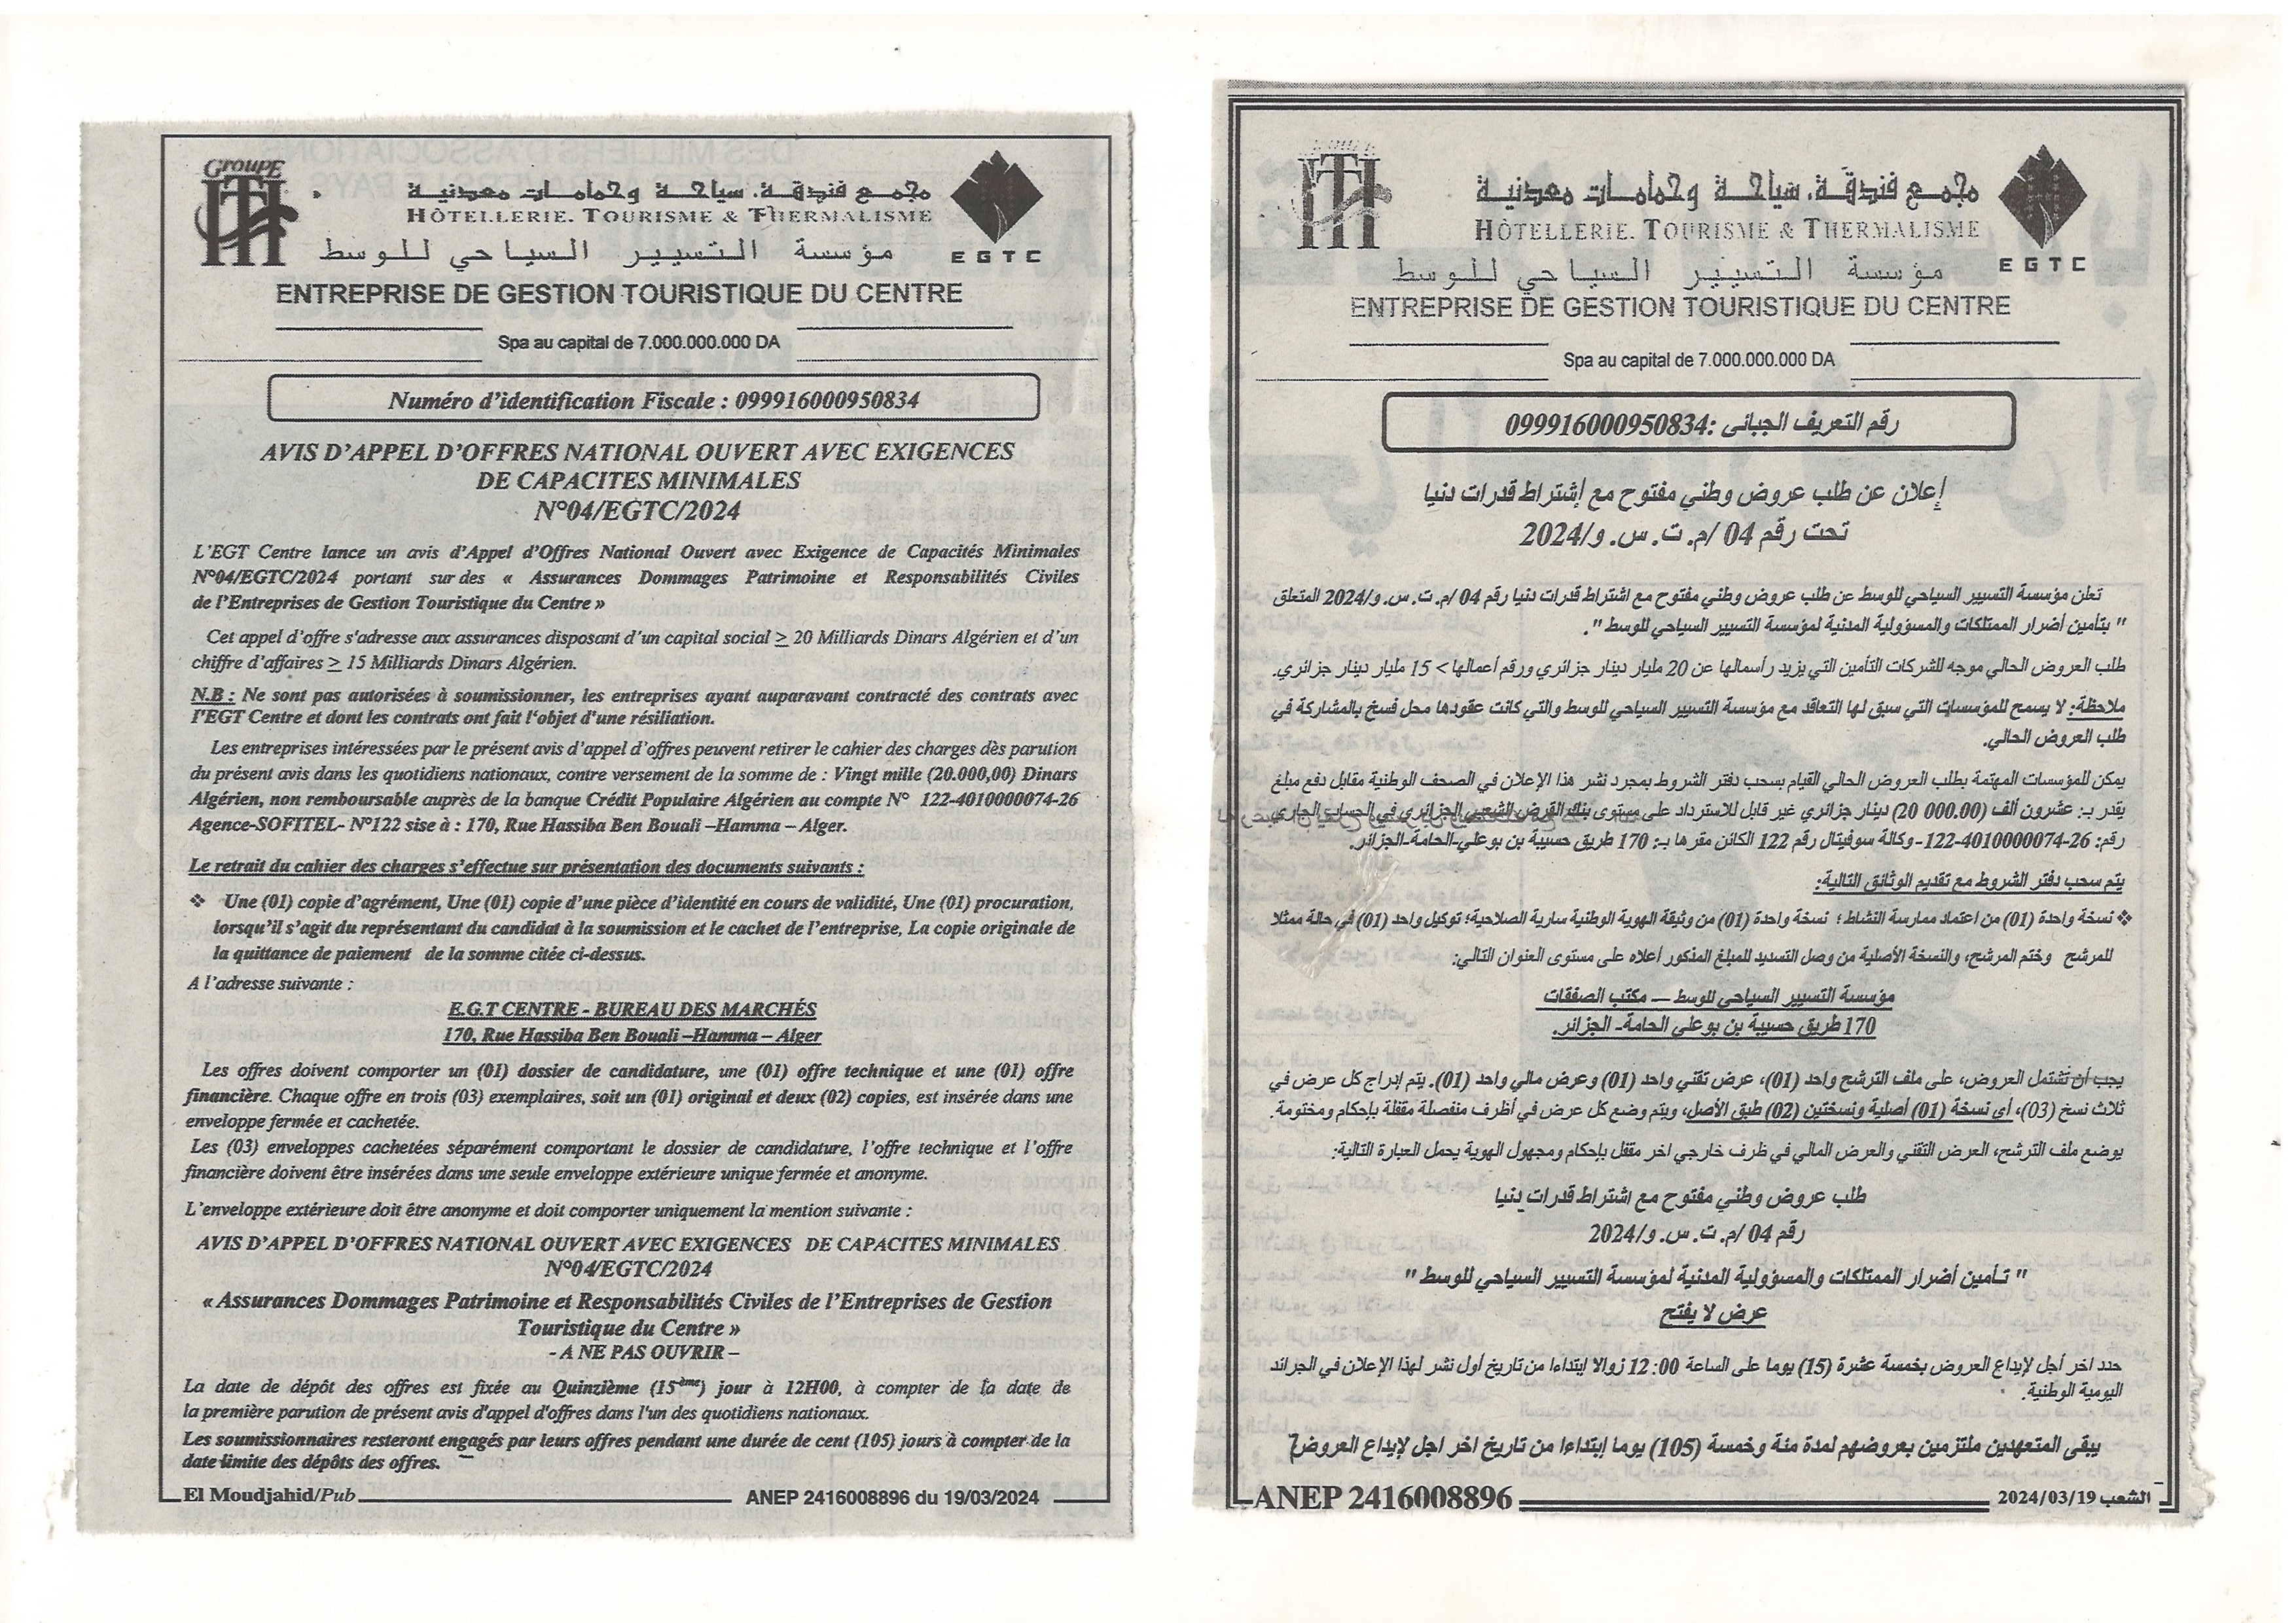 GROUPE
HTT
مجمع فندقة، سياحة وحمامات معدنية
HÔTELLERIE. TOURISME & THERMALISME
مؤسسة التسيير السياحي للوسط
EGTC
ENTREPRISE DE GESTION TOURISTIQUE DU CENTRE
Spa au capital de 7.000.000.000 DA
Numéro d'identification Fiscale : 099916000950834
AVIS D'APPEL D'OFFRES NATIONAL OUVERT AVEC EXIGENCES
DE CAPACITES MINIMALES
N°04/EGTC/2024
L'EGT Centre lance un avis d'Appel d'Offres National Ouvert avec Exigence de Capacités Minimales
N°04/EGTC/2024 portant sur des « Assurances Dommages Patrimoine et Responsabilités Civiles
de l'Entreprises de Gestion Touristique du Centre »
Cet appel d'offre s'adresse aux assurances disposant d'un capital social ≥ 20 Milliards Dinars Algérien et d'un
chiffre d'affaires ≥ 15 Milliards Dinars Algérien.
N.B : Ne sont pas autorisées à soumissionner, les entreprises ayant auparavant contracté des contrats avec
l'EGT Centre et dont les contrats ont fait l'objet d'une résiliation.
Les entreprises intéressées par le présent avis d'appel d'offres peuvent retirer le cahier des charges dès parution
du présent avis dans les quotidiens nationaux, contre versement de la somme de : Vingt mille (20.000,00) Dinars
Algérien, non remboursable auprès de la banque Crédit Populaire Algérien au compte N° 122-4010000074-26
Agence-SOFITEL- N°122 sise à : 170, Rue Hassiba Ben Bouali –Hamma – Alger.
Le retrait du cahier des charges s'effectue sur présentation des documents suivants :
❖ Une (01) copie d'agrément, Une (01) copie d'une pièce d'identité en cours de validité, Une (01) procuration,
lorsqu'il s'agit du représentant du candidat à la soumission et le cachet de l'entreprise, La copie originale de
la quittance de paiement de la somme citée ci-dessus.
A l'adresse suivante :
E.G.T CENTRE - BUREAU DES MARCHÉS
170, Rue Hassiba Ben Bouali –Hamma – Alger
Les offres doivent comporter un (01) dossier de candidature, une (01) offre technique et une (01) offre
financière. Chaque offre en trois (03) exemplaires, soit un (01) original et deux (02) copies, est insérée dans une
enveloppe fermée et cachetée.
Les (03) enveloppes cachetées séparément comportant le dossier de candidature, l'offre technique et l'offre
financière doivent être insérées dans une seule enveloppe extérieure unique fermée et anonyme.
L'enveloppe extérieure doit être anonyme et doit comporter uniquement la mention suivante :
AVIS D'APPEL D'OFFRES NATIONAL OUVERT AVEC EXIGENCES DE CAPACITES MINIMALES
N°04/EGTC/2024
« Assurances Dommages Patrimoine et Responsabilités Civiles de l'Entreprises de Gestion
Touristique du Centre »
- A NE PAS OUVRIR –
La date de dépôt des offres est fixée au Quinzième (15ème) jour à 12H00, à compter de la date de
la première parution de présent avis d'appel d'offres dans l'un des quotidiens nationaux.
Les soumissionnaires resteront engagés par leurs offres pendant une durée de cent (105) jours à compter de la
date limite des dépôts des offres.
El Moudjahid/Pub
ANEP 2416008896 du 19/03/2024
HTT
مجمع فندقة، سياحة وحمامات معدنية
HÔTELLERIE. TOURISME & THERMALISME
مؤسسة التسيير السياحي للوسط
EGTC
ENTREPRISE DE GESTION TOURISTIQUE DU CENTRE
Spa au capital de 7.000.000.000 DA
رقم التعريف الجبائى :099916000950834
إعلان عن طلب عروض وطني مفتوح مع إشتراط قدرات دنيا
تحت رقم 04 /م. ت. س. و/2024
تعلن مؤسسة التسيير السياحي للوسط عن طلب عروض وطني مفتوح مع اشتراط قدرات دنيا رقم 04 /م.ت.س.و/2024 المتعلق
" بتأمين أضرار الممتلكات والمسؤولية المدنية لمؤسسة التسيير السياحي للوسط ".
طلب العروض الحالي موجه للشركات التأمين التي يزيد رأسمالها عن 20 مليار دينار جزائري ورقم أعمالها > 15 مليار دينار جزائري.
ملاحظة: لا يسمح للمؤسسات التي سبق لها التعاقد مع مؤسسة التسيير السياحي للوسط والتي كانت عقودها محل فسخ بالمشاركة في
طلب العروض الحالي.
يمكن للمؤسسات المهتمة بطلب العروض الحالي القيام بسحب دفتر الشروط بمجرد نشر هذا الإعلان في الصحف الوطنية مقابل دفع مبلغ
يقدر بـ: عشرون ألف (20 000.00) دينار جزائري غير قابل للاسترداد على مستوى بنك القرض الشعبي الجزائري في الحساب الجاري
رقم: 26-4010000074-122- وكالة سوفيتال رقم 122 الكائن مقرها بـ: 170 طريق حسيبة بن بوعلي-الحامة-الجزائر.
يتم سحب دفتر الشروط مع تقديم الوثائق التالية:
❖ نسخة واحدة (01) من اعتماد ممارسة النشاط ؛ نسخة واحدة (01) من وثيقة الهوية الوطنية سارية الصلاحية؛ توكيل واحد (01) في حالة ممثلا
للمرشح وختم المرشح، والنسخة الأصلية من وصل التسديد للمبلغ المذكور أعلاه على مستوى العنوان التالي:
مؤسسة التسيير السياحي للوسط — مكتب الصفقات
170 طريق حسيبة بن بوعلي الحامة- الجزائر.
يجب أن تشتمل العروض، على ملف الترشح واحد (01)، عرض تقني واحد (01) وعرض مالي واحد (01). يتم إدراج كل عرض في
ثلاث نسخ (03)، أي نسخة (01) أصلية ونسختين (02) طبق الأصل، ويتم وضع كل عرض في أظرف منفصلة مقفلة بإحكام ومختومة.
يوضع ملف الترشح، العرض التقني والعرض المالي في ظرف خارجي اخر مقفل بإحكام ومجهول الهوية يحمل العبارة التالية:
طلب عروض وطني مفتوح مع اشتراط قدرات دنيا
رقم 04 /م. ت. س. و/2024
" تأمين أضرار الممتلكات والمسؤولية المدنية لمؤسسة التسيير السياحي للوسط "
عرض لا يفتح
حدد اخر أجل لإيداع العروض بخمسة عشرة (15) يوما على الساعة 12:00 زوالا ابتداءا من تاريخ أول نشر لهذا الإعلان في الجرائد
اليومية الوطنية.
يبقى المتعهدين ملتزمين بعروضهم لمدة مئة وخمسة (105) يوما إبتداءا من تاريخ اخر اجل لإيداع العروض
ANEP 2416008896
الشعب 2024/03/19